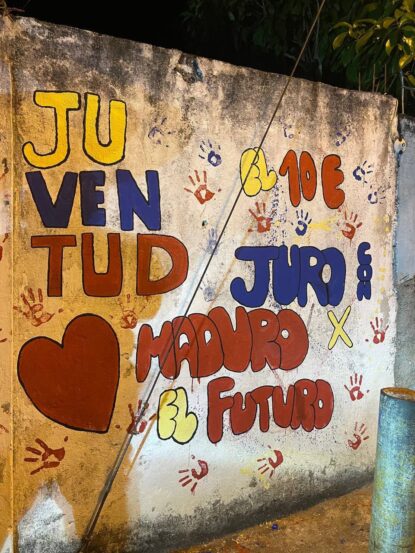 JU
VEN
TUD
EL 10 E
JURO CON
MADURO X
EL FUTURO